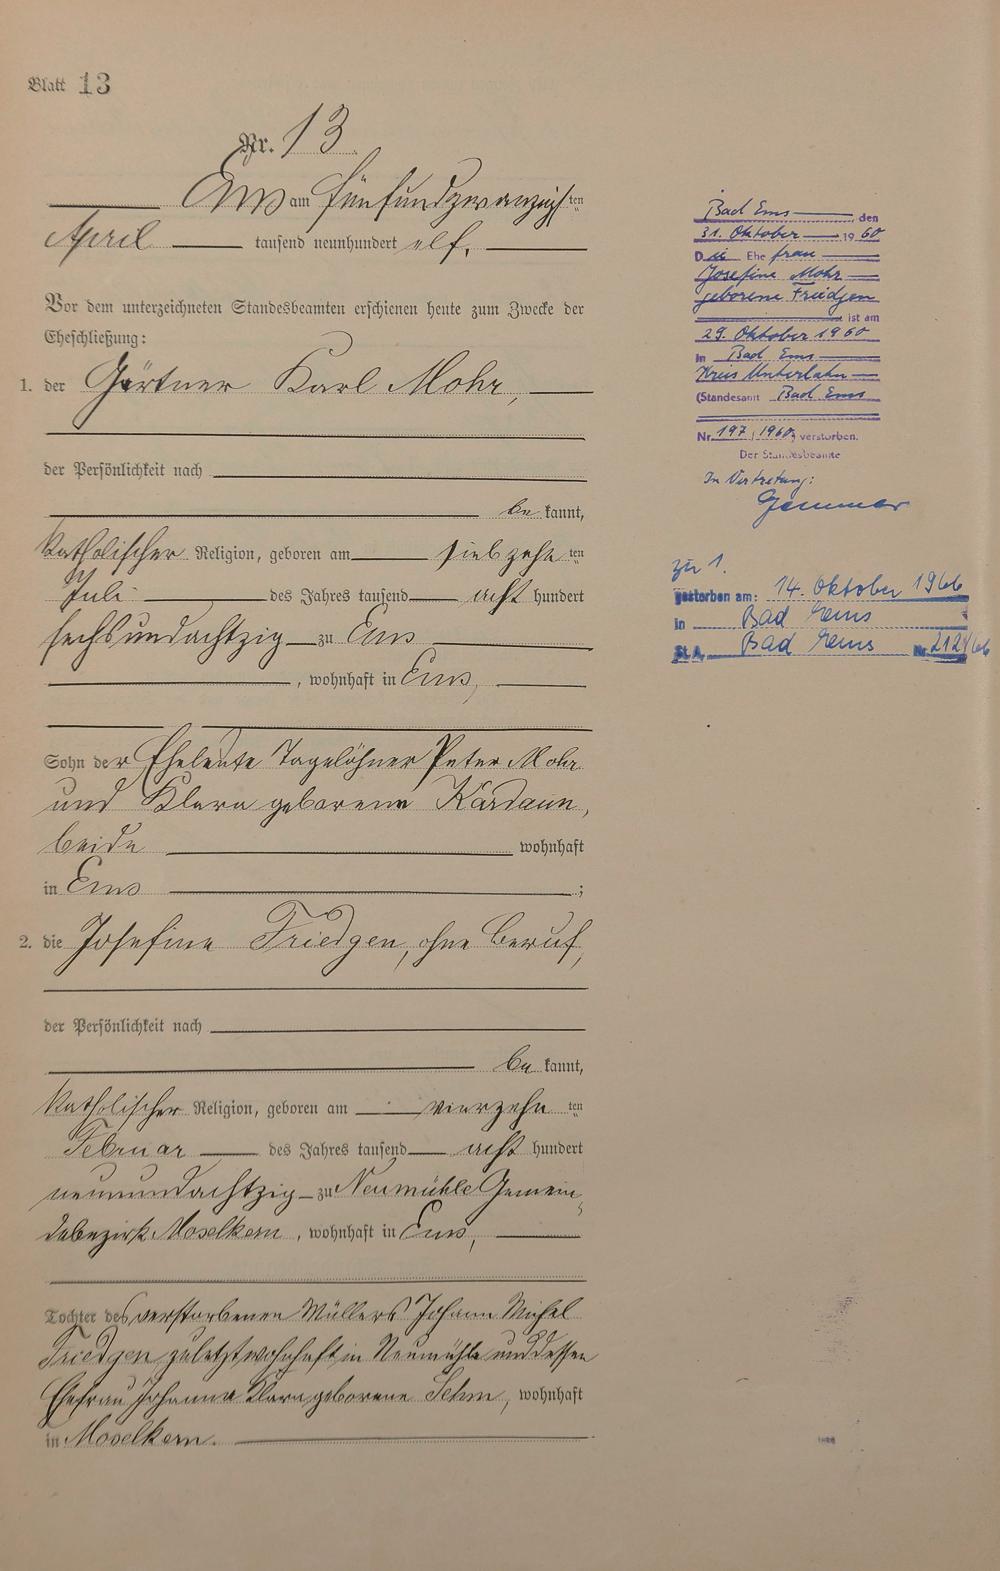 Blatt 13
Nr. 13
Ems am fünfundzwanzigsten
April tausend neunhundert elf.
Vor dem unterzeichneten Standesbeamten erschienen heute zum Zwecke der
Eheschließung:
1. der Gärtner Karl Mohr,
der Persönlichkeit nach
be kannt,
katholischer Religion, geboren am siebzehn ten
Juli des Jahres tausend acht hundert
sechsundachtzig zu Ems
, wohnhaft in Ems,
Sohn der Eheleute Tagelöhner Peter Mohr
und Klara geborene Kardaun,
beide wohnhaft
in Ems ;
2. die Josefine Friedgen, ohne Beruf,
der Persönlichkeit nach
be kannt,
katholischer Religion, geboren am vierzehn ten
Februar des Jahres tausend acht hundert
neunundachtzig zu Neumühle Gemein-
debezirk Moselkern, wohnhaft in Ems,
Tochter des verstorbenen Müllers Johann Michel
Friedgen zuletzt wohnhaft in Neumühle und dessen
Ehefrau Johanna Klara geborene Sehm, wohnhaft
in Moselkern.
Bad Ems, den
31. Oktober 1960
Die Ehefrau
Josefine Mohr
geborene Friedgen
ist am
29. Oktober 1960
in Bad Ems
Kreis Unterlahn
(Standesamt Bad Ems
Nr. 197/1960) verstorben.
Der Standesbeamte
In Vertretung:
Gemmer
zu 1.
gestorben am: 14. Oktober 1966
in Bad Ems
St.A. Bad Ems Nr. 212/66